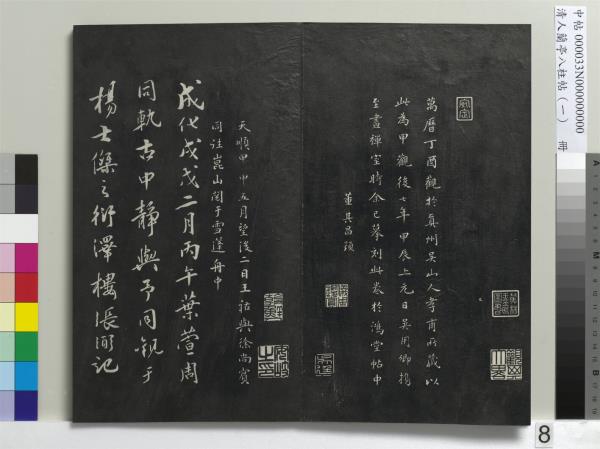 中帖 000033N000000000 冊
清人蘭亭八柱帖（一）
萬曆丁酉觀於真州吳山人孝甫所藏以
此為甲觀後七年甲辰上元日吳用卿携
至畫禪室時余已摹刻此卷於鴻堂帖中
董其昌題
天順甲申五月望後二日王祐與徐尚賓
同注崑山閱于雪蓬舟中
成化戊戌二月丙午葉萱周
同軌古中靜與予同觀于
楊士傑之衍澤樓張記
8